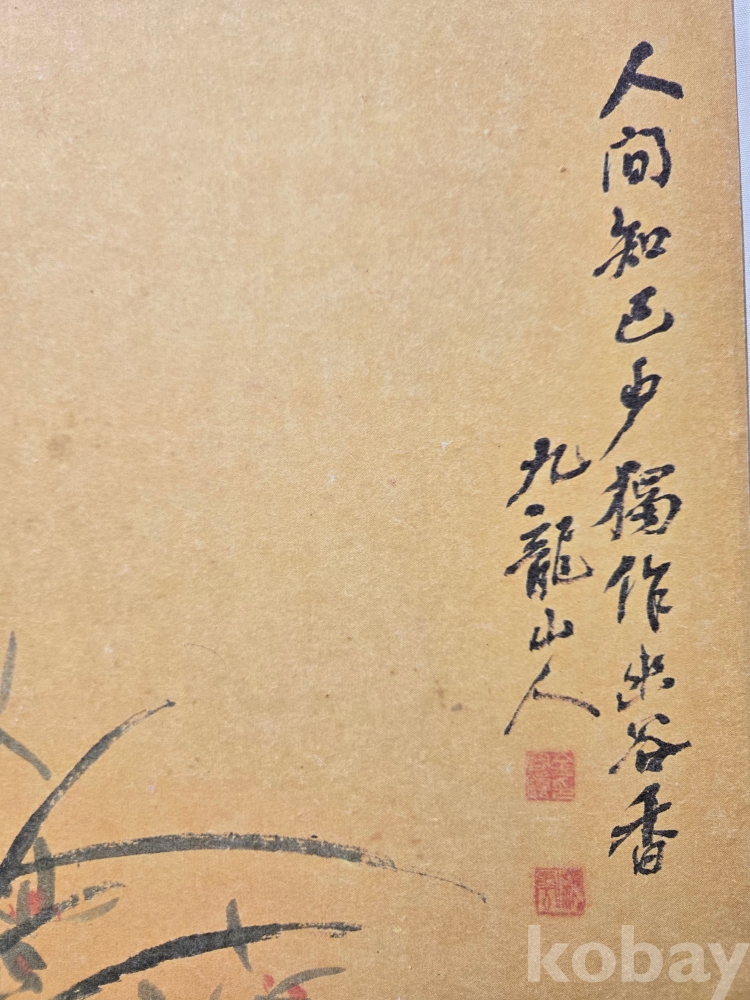 人间知己少獨作幽谷香
九龍山人
kobay